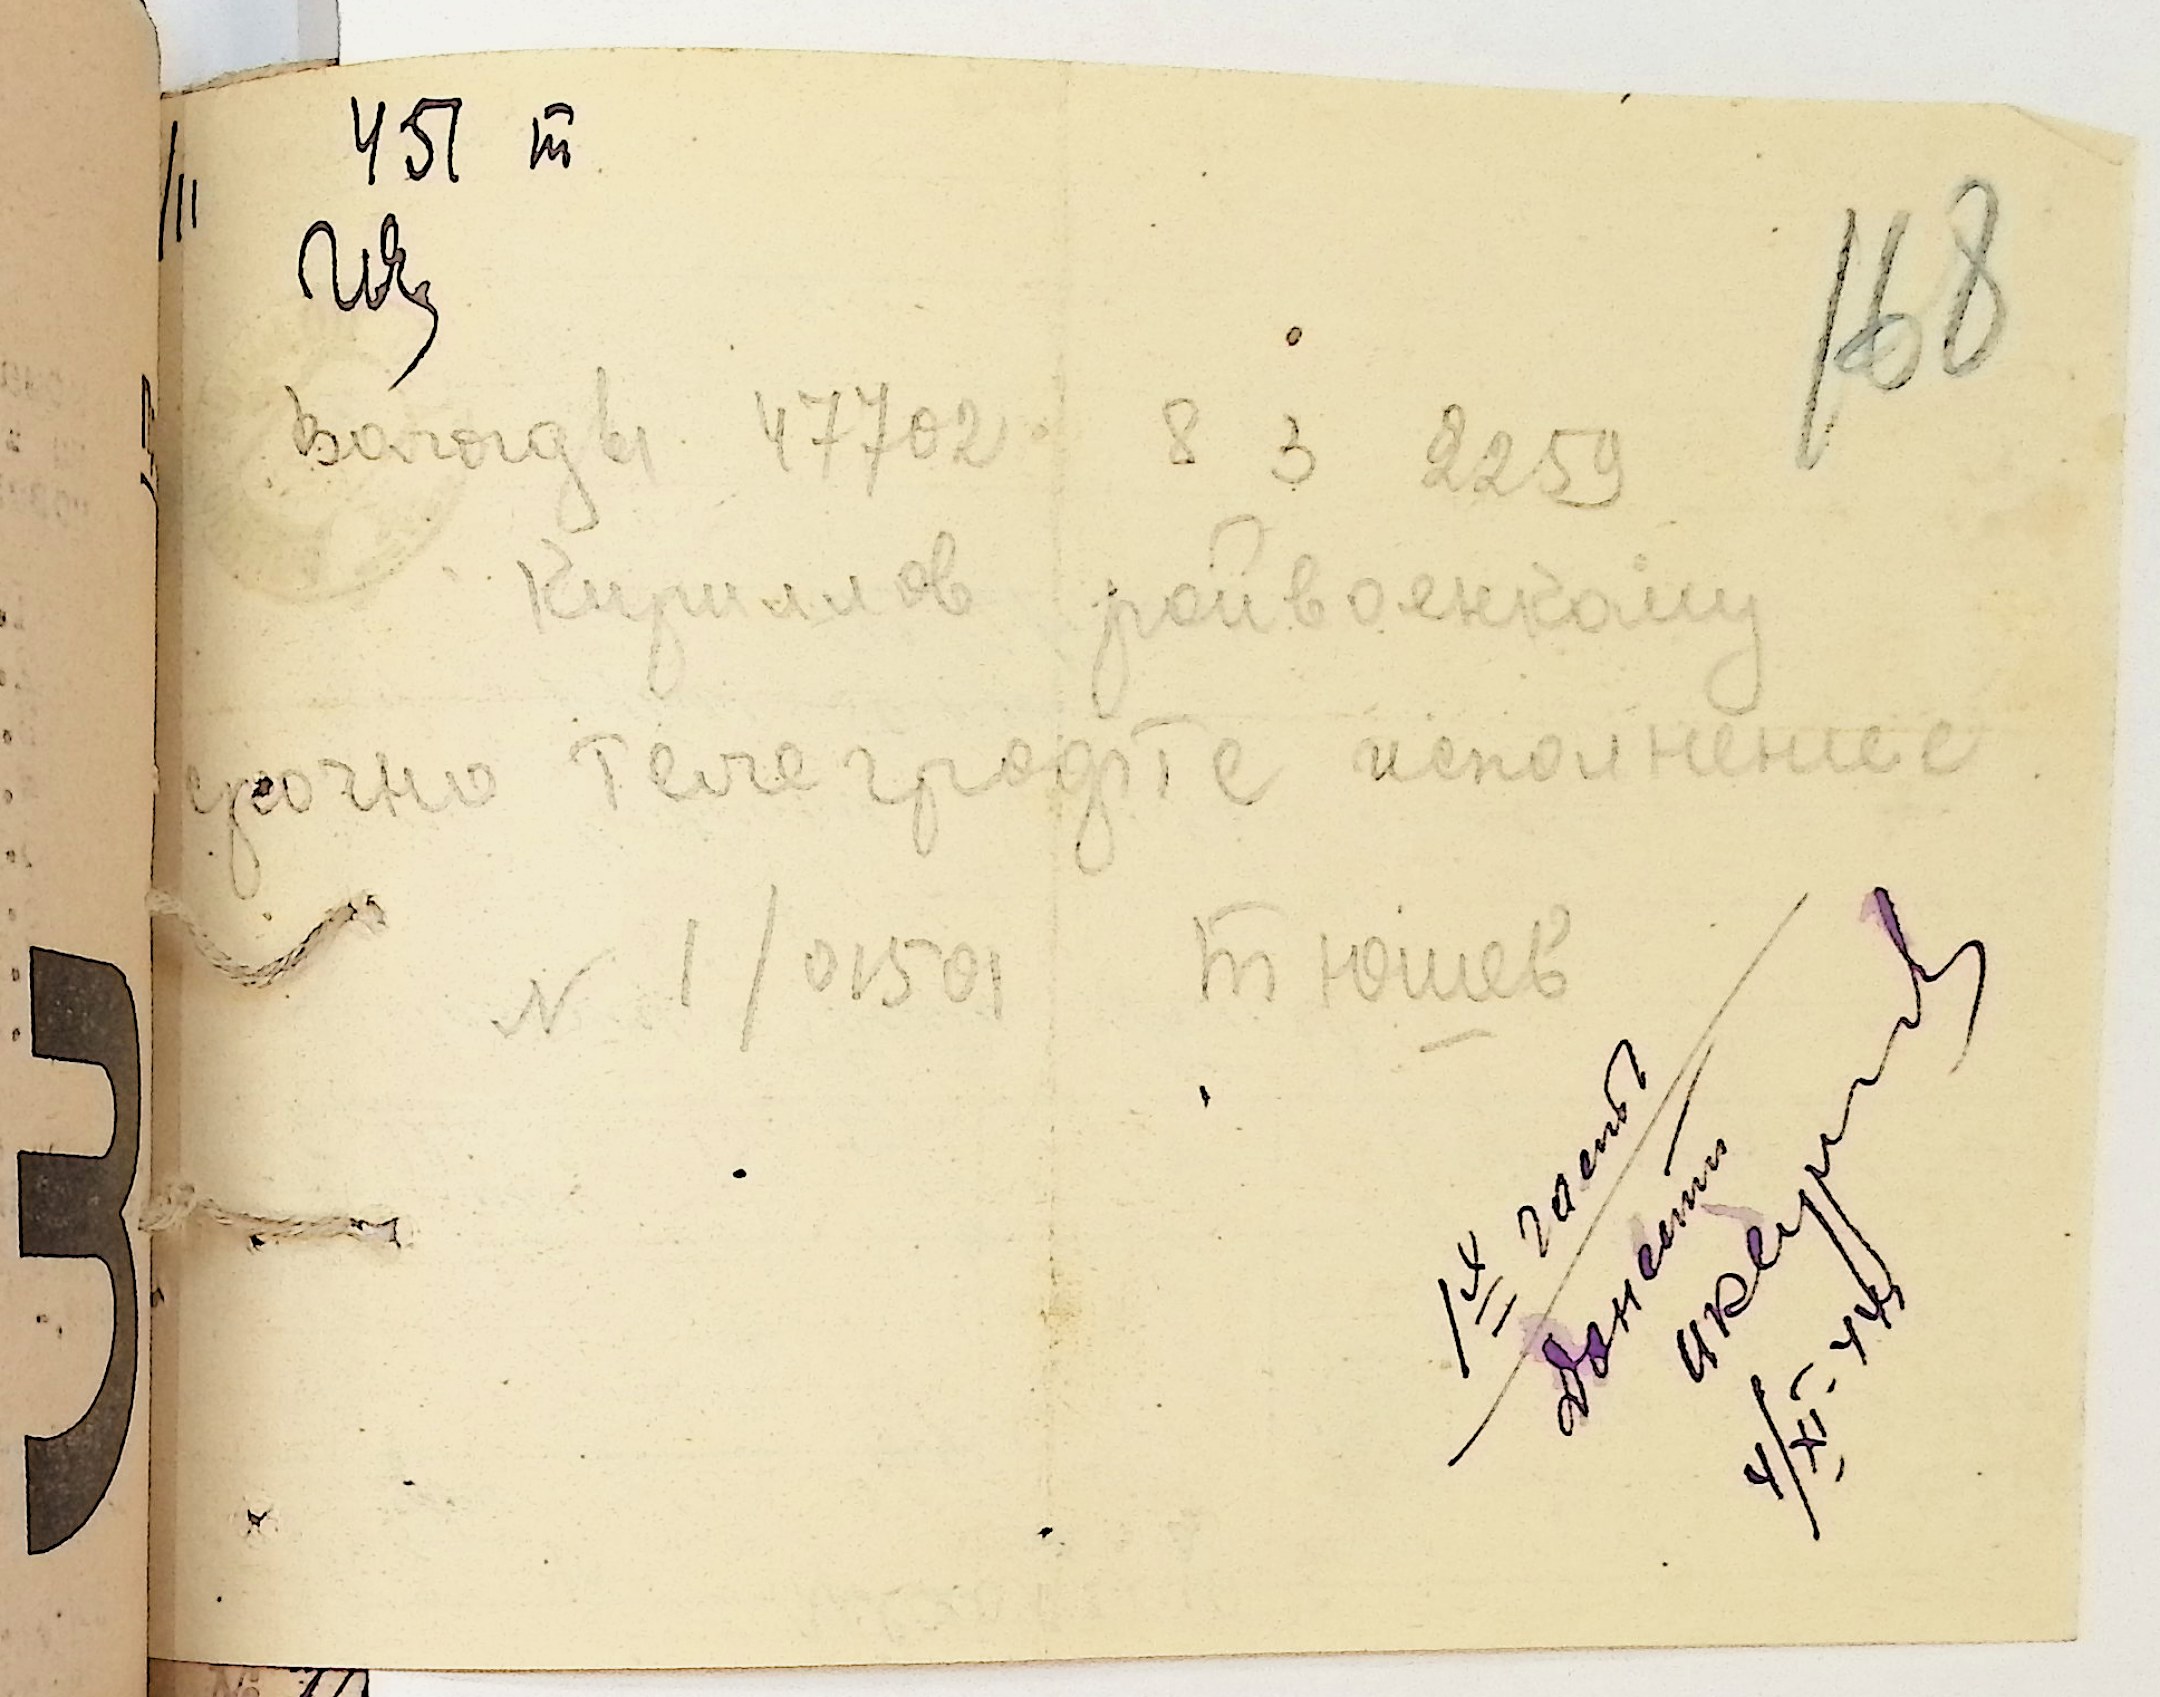 451 т
168
Вологды 47702 8 3 2259
Кириллов райвоенкому
срочно телеграфте исполнение
N 1/01501 Тюшев
IX часть
Донести
4/XI-44